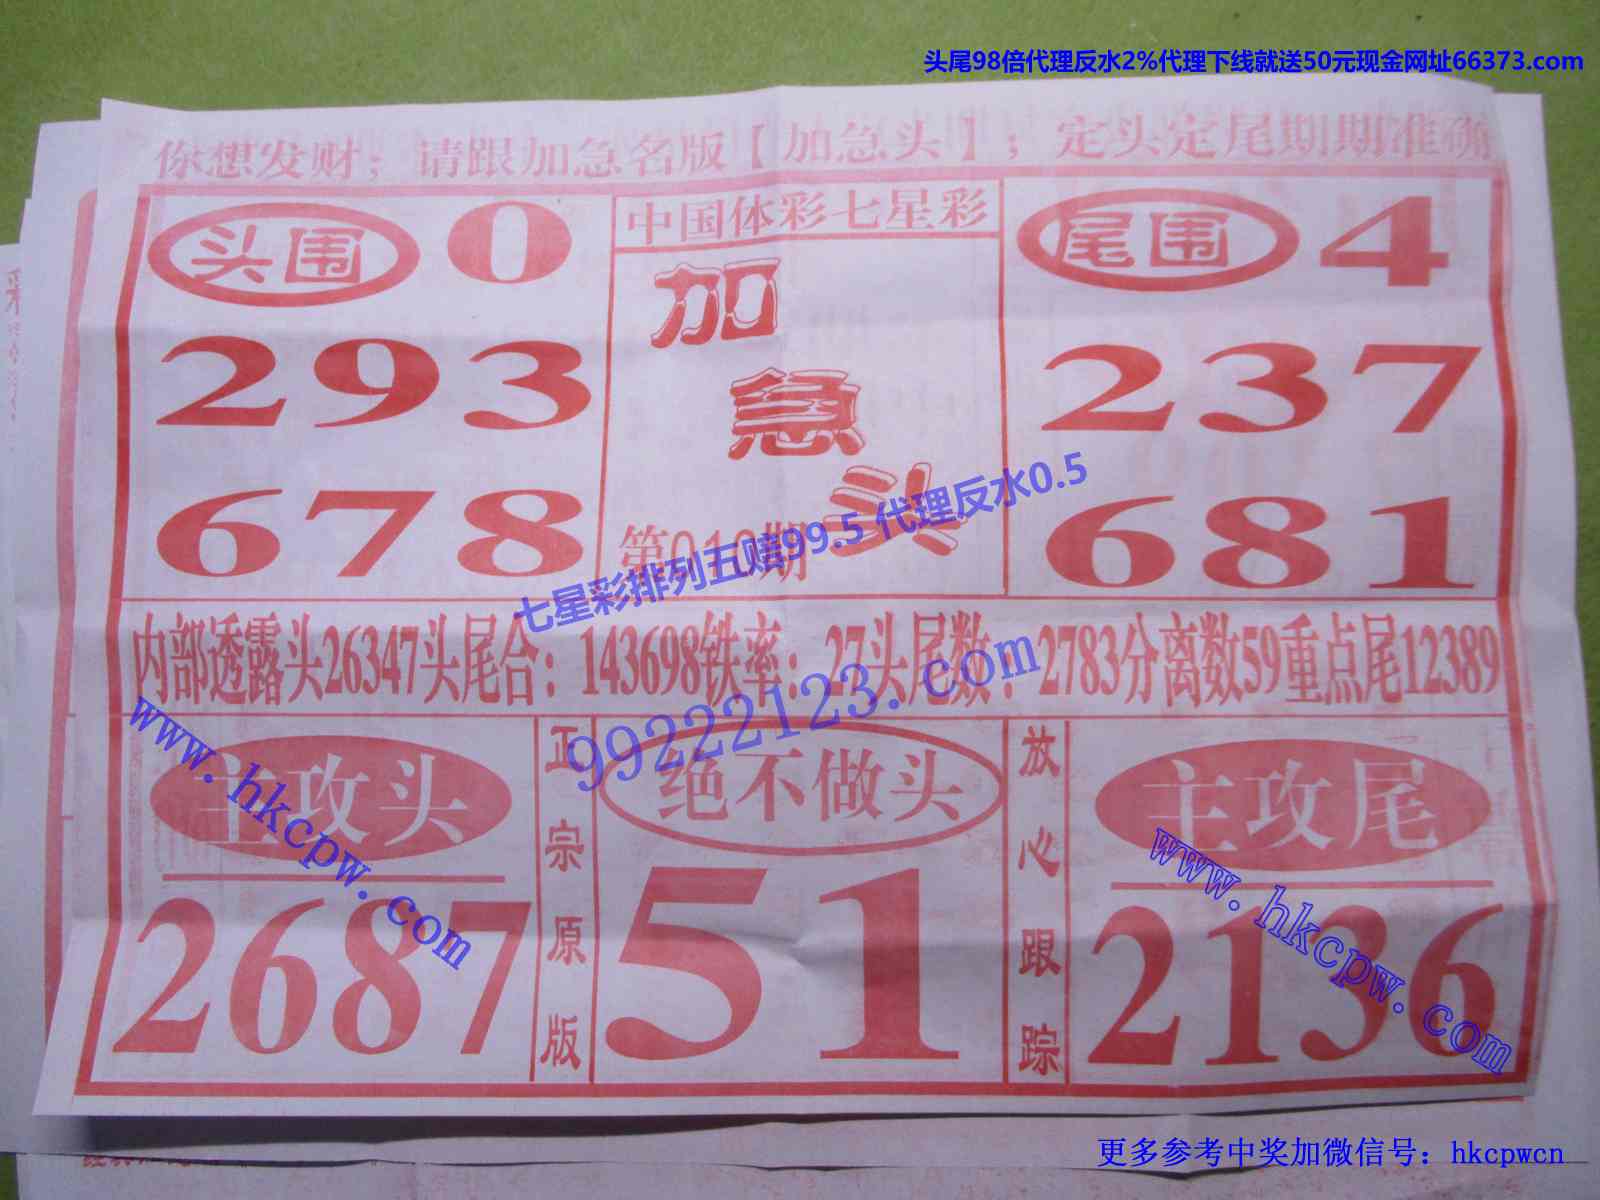 头尾98倍代理反水2%代理下线就送50元现金网址66373.com
你想发财；请跟加急名版【加急头】；定头定尾期期准确
头围 0
293
678
中国体彩七星彩
加急头
第010期
尾围 4
237
681
七星彩排列五赔99.5 代理反水0.5
内部透露头26347头尾合：143698铁率：27头尾数：2783分离数59重点尾12389
99222123.com
www.hkcpw.com
主攻头
2687
正宗原版
绝不做头
51
放心跟踪
主攻尾
2136
www.hkcpw.com
更多参考中奖加微信号：hkcpwcn